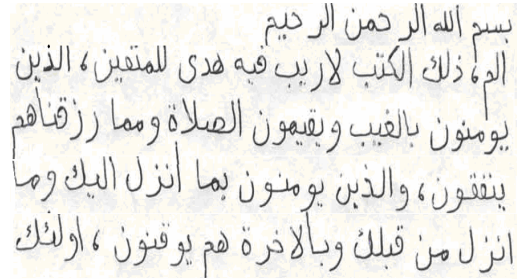 بسم الله الرحمن الرحيم
الم، ذلك الكتب لاريب فيه هدى للمتقين، الذين
يومنون بالغيب ويقيمون الصلاة ومما رزقناهم
ينفقون، والذين يومنون بما أنزل اليك وما
انزل من قبلك وبالاخرة هم يوقنون، اولئك